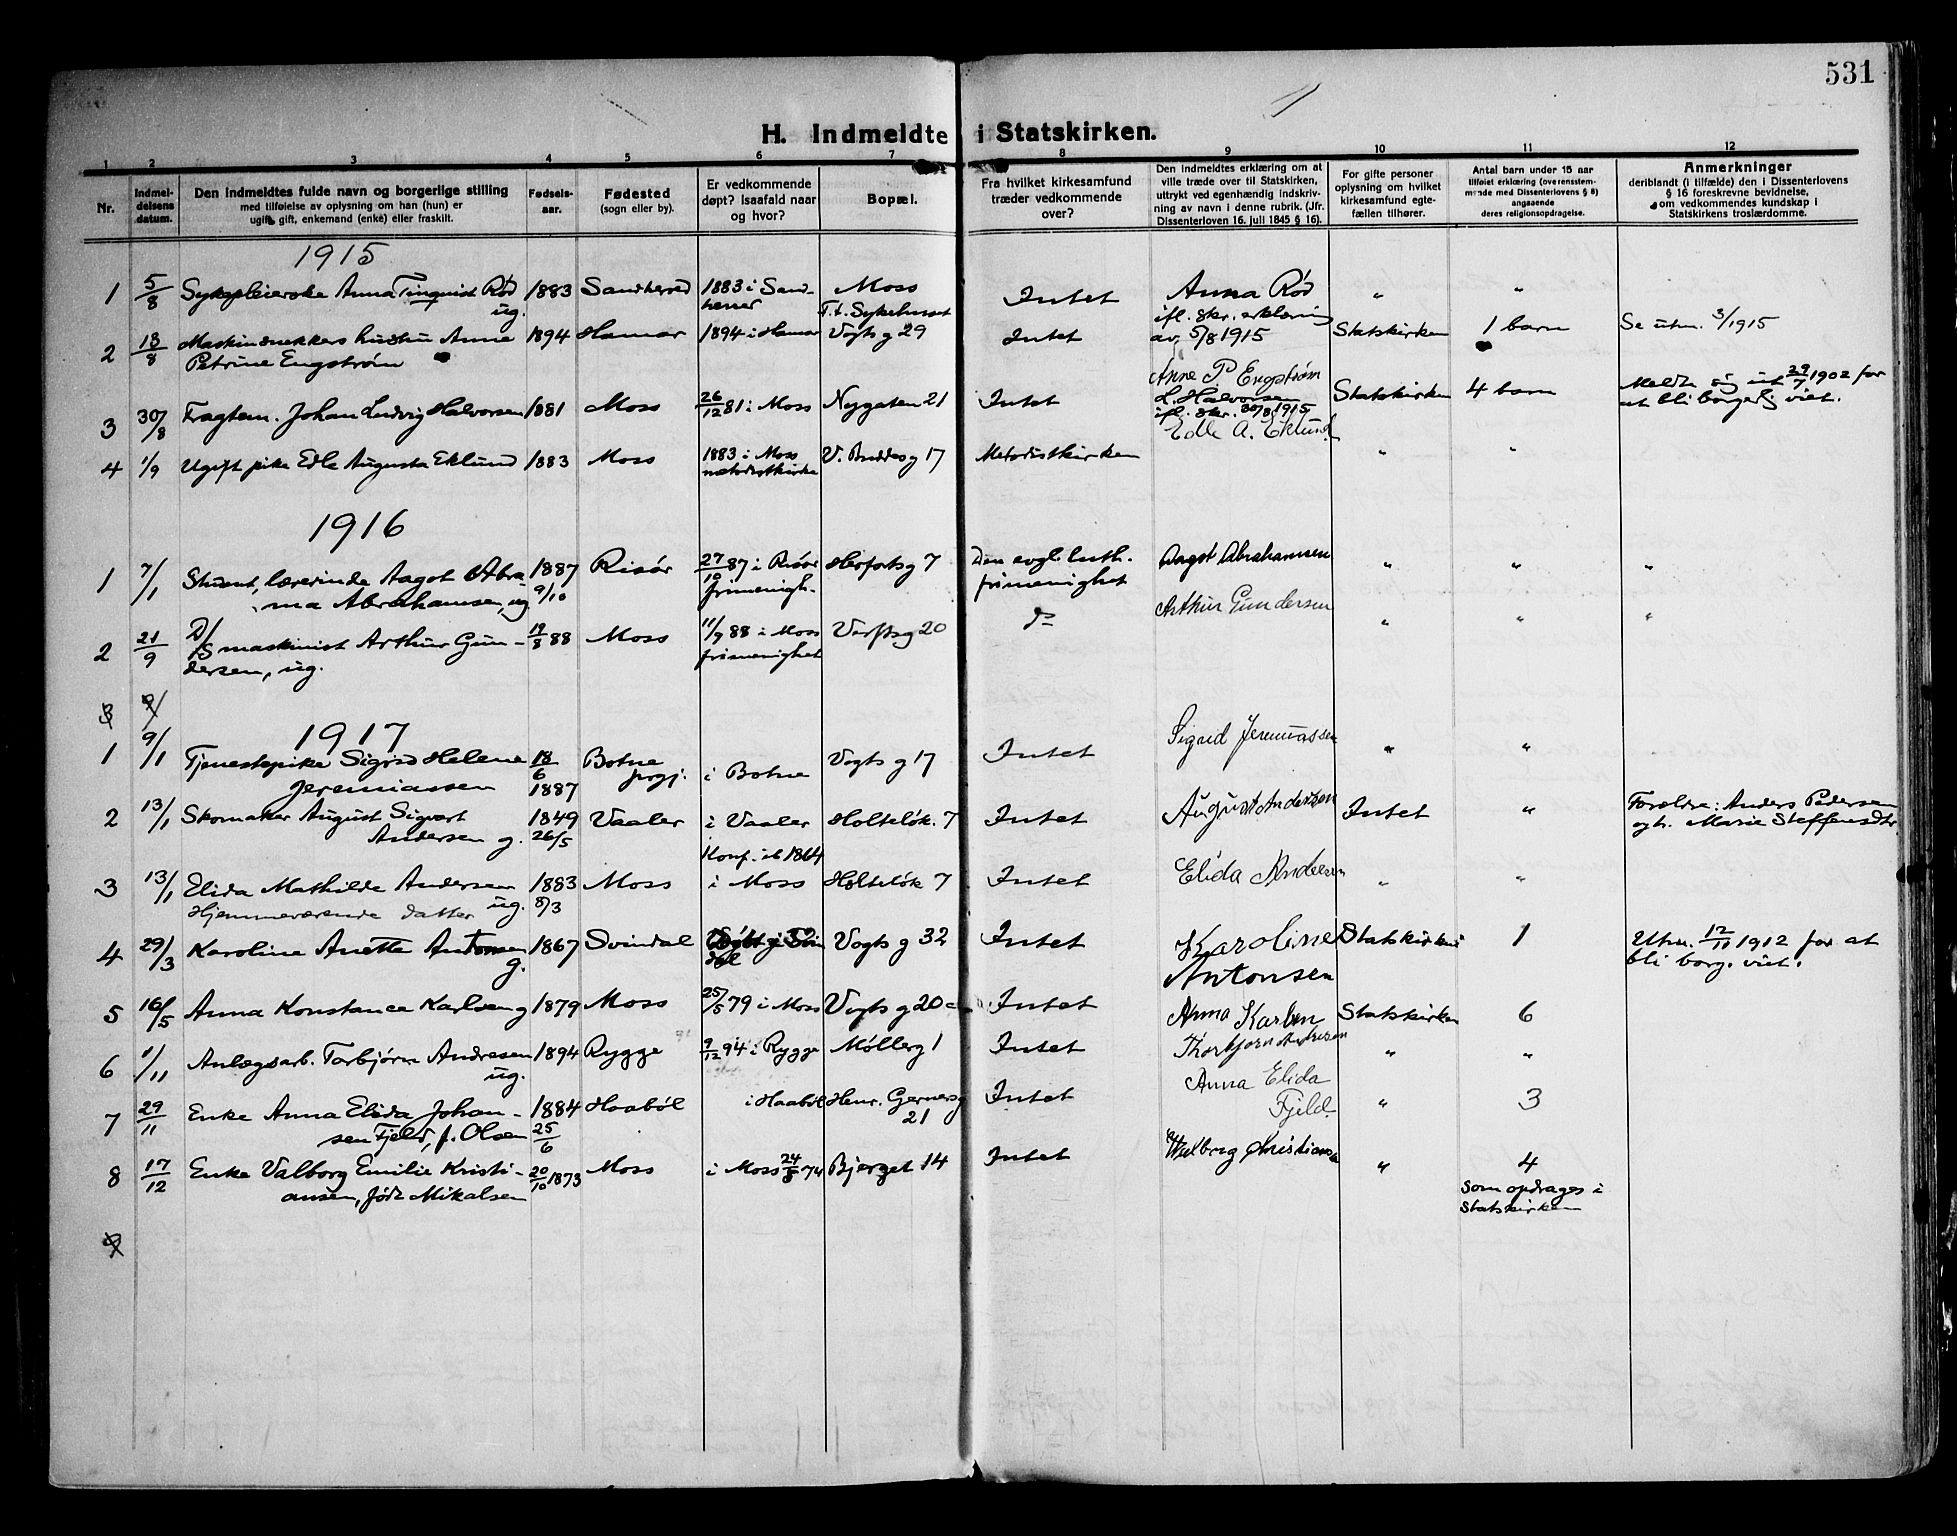 531
H. Indmeldte i Statskirken.
1 2 3 4 5 6 7 8 9 10 11 12
Nr.
Indmel-
delsens
datum.
Den indmeldtes fulde navn og borgerlige stilling
med tilføielse av oplysning om han (hun) er
ugift, gift, enkemand (enke) eller fraskilt.
Fødsels-
aar.
Fødested
(sogn eller by).
Er vedkommende
døpt? Isaafald naar
og hvor?
Bopæl.
Fra hvilket kirkesamfund
træder vedkommende
over?
Den indmeldtes erklæring om at
ville træde over til Statskirken,
uttrykt ved egenhændig indskriv-
ning av navn i denne rubrik. (Jfr.
Dissenterloven 16. juli 1845 § 16).
For gifte personer
oplysning om hvilket
kirkesamfund egte-
fællen tilhører.
Antal barn under 15 aar
tilføiet erklæring (overensstem-
mende med Dissenterlovens § 8)
angaaende
deres religionsopdragelse.
Anmerkninger
deriblandt (i tilfælde) den i Dissenterlovens
§ 16 foreskrevne bevidnelse,
om vedkommendes kundskap i
Statskirkens troslærdomme.
1915
1 5/8 Sykepleierske Anna Tinqvist Rød 1883 Sandherred 1883 i Sand- Moss Intet Anna Rød " "
ug. herred F.t. Sykehuset ifl. skr. erklæring
2 13/8 Maskinsnekkers hustru Anne 1894 Hamar 1894 i Hamar Vogts g 29 Intet av 5/8 1915 Statskirken 1 barn Se utm. 3/1915
Petrine Engstrøm Anne P Engstrøm
3 30/8 Fragtem. Johan Ludvig Halvorsen 1881 Moss 26/12 81 i Moss Nygaten 21 Intet L. Halvorsen Statskirken 4 barn Meldte sig ut 29/7 1902 for
ifl. skr. 30/8 1915 at bli borgerlig viet.
Edle A. Eklund
4 1/9 Ugift pike Edle Augusta Eklund 1883 Moss 1883 i Moss V. Buddes g 17 Metodistkirken " "
metodistkirke
1916
1 7/1 Student, lærerinde Aagot Abra- 1887 Risør 27/10 87 i Risør Herforts g 7 Den evgl. luth. Aagot Abrahamsen " " "
ma Abrahamsen, ug 9/10 frimenigh. frimenighet
2 21/9 D/S maskinist Arthur Gun- 19/8 88 Moss 11/9 88 i Moss Verfts g 20 do Arthur Gundersen " " "
dersen, ug. frimenighet
3 9/
1917
1 9/1 Tjenestepike Sigrid Helene 18/6 Botne i Botne Vogts g 17 Intet Sigrid Jeremiassen " "
Jeremiassen 1887 prgj.
2 13/1 Skomaker August Sigvart 1849 Vaaler i Vaaler Holteløk. 7 Intet August Andersen Intet " Forældre: Anders Pedersen
Andersen g. 26/5 Konf. ib 1864 og h. Marie Steffensdtr
3 13/1 Elida Mathilde Andersen 1883 Moss i Moss Holteløk 7 Intet Elida Andersen " "
Hjemmeværende datter ug. 8/3
4 29/3 Karoline Anette Antonsen 1867 Svindal Vogts g 32 Intet Karoline Statskirken 1 Utm. 12/11 1912 for at
g. Antonsen bli borg. viet.
5 16/5 Anna Konstance Karlsen g 1879 Moss 25/5 79 i Moss Vogts g 20 c Intet Anna Karlsen Statskirken 6
6 1/11 Anlægsarb. Torbjørn Andresen 1894 Rygge 9/12 94 i Rygge Møllerg 1 Intet Thorbjørn Andresen " "
ug.
7 29/11 Enke Anna Elida Johan- 1884 Haabøl i Haabøl Henr. Gerners g Intet Anna Elida " 3
sen Fjeld, f. Olsen 25/6 21 Fjeld.
8 17/12 Enke Valborg Emilie Kristi- 20/10 1873 Moss i Moss 24/8 74 Bjerget 14 Intet Valborg Christiansen " 4
ansen, født Mikalsen som opdrages i
Statskirken
9